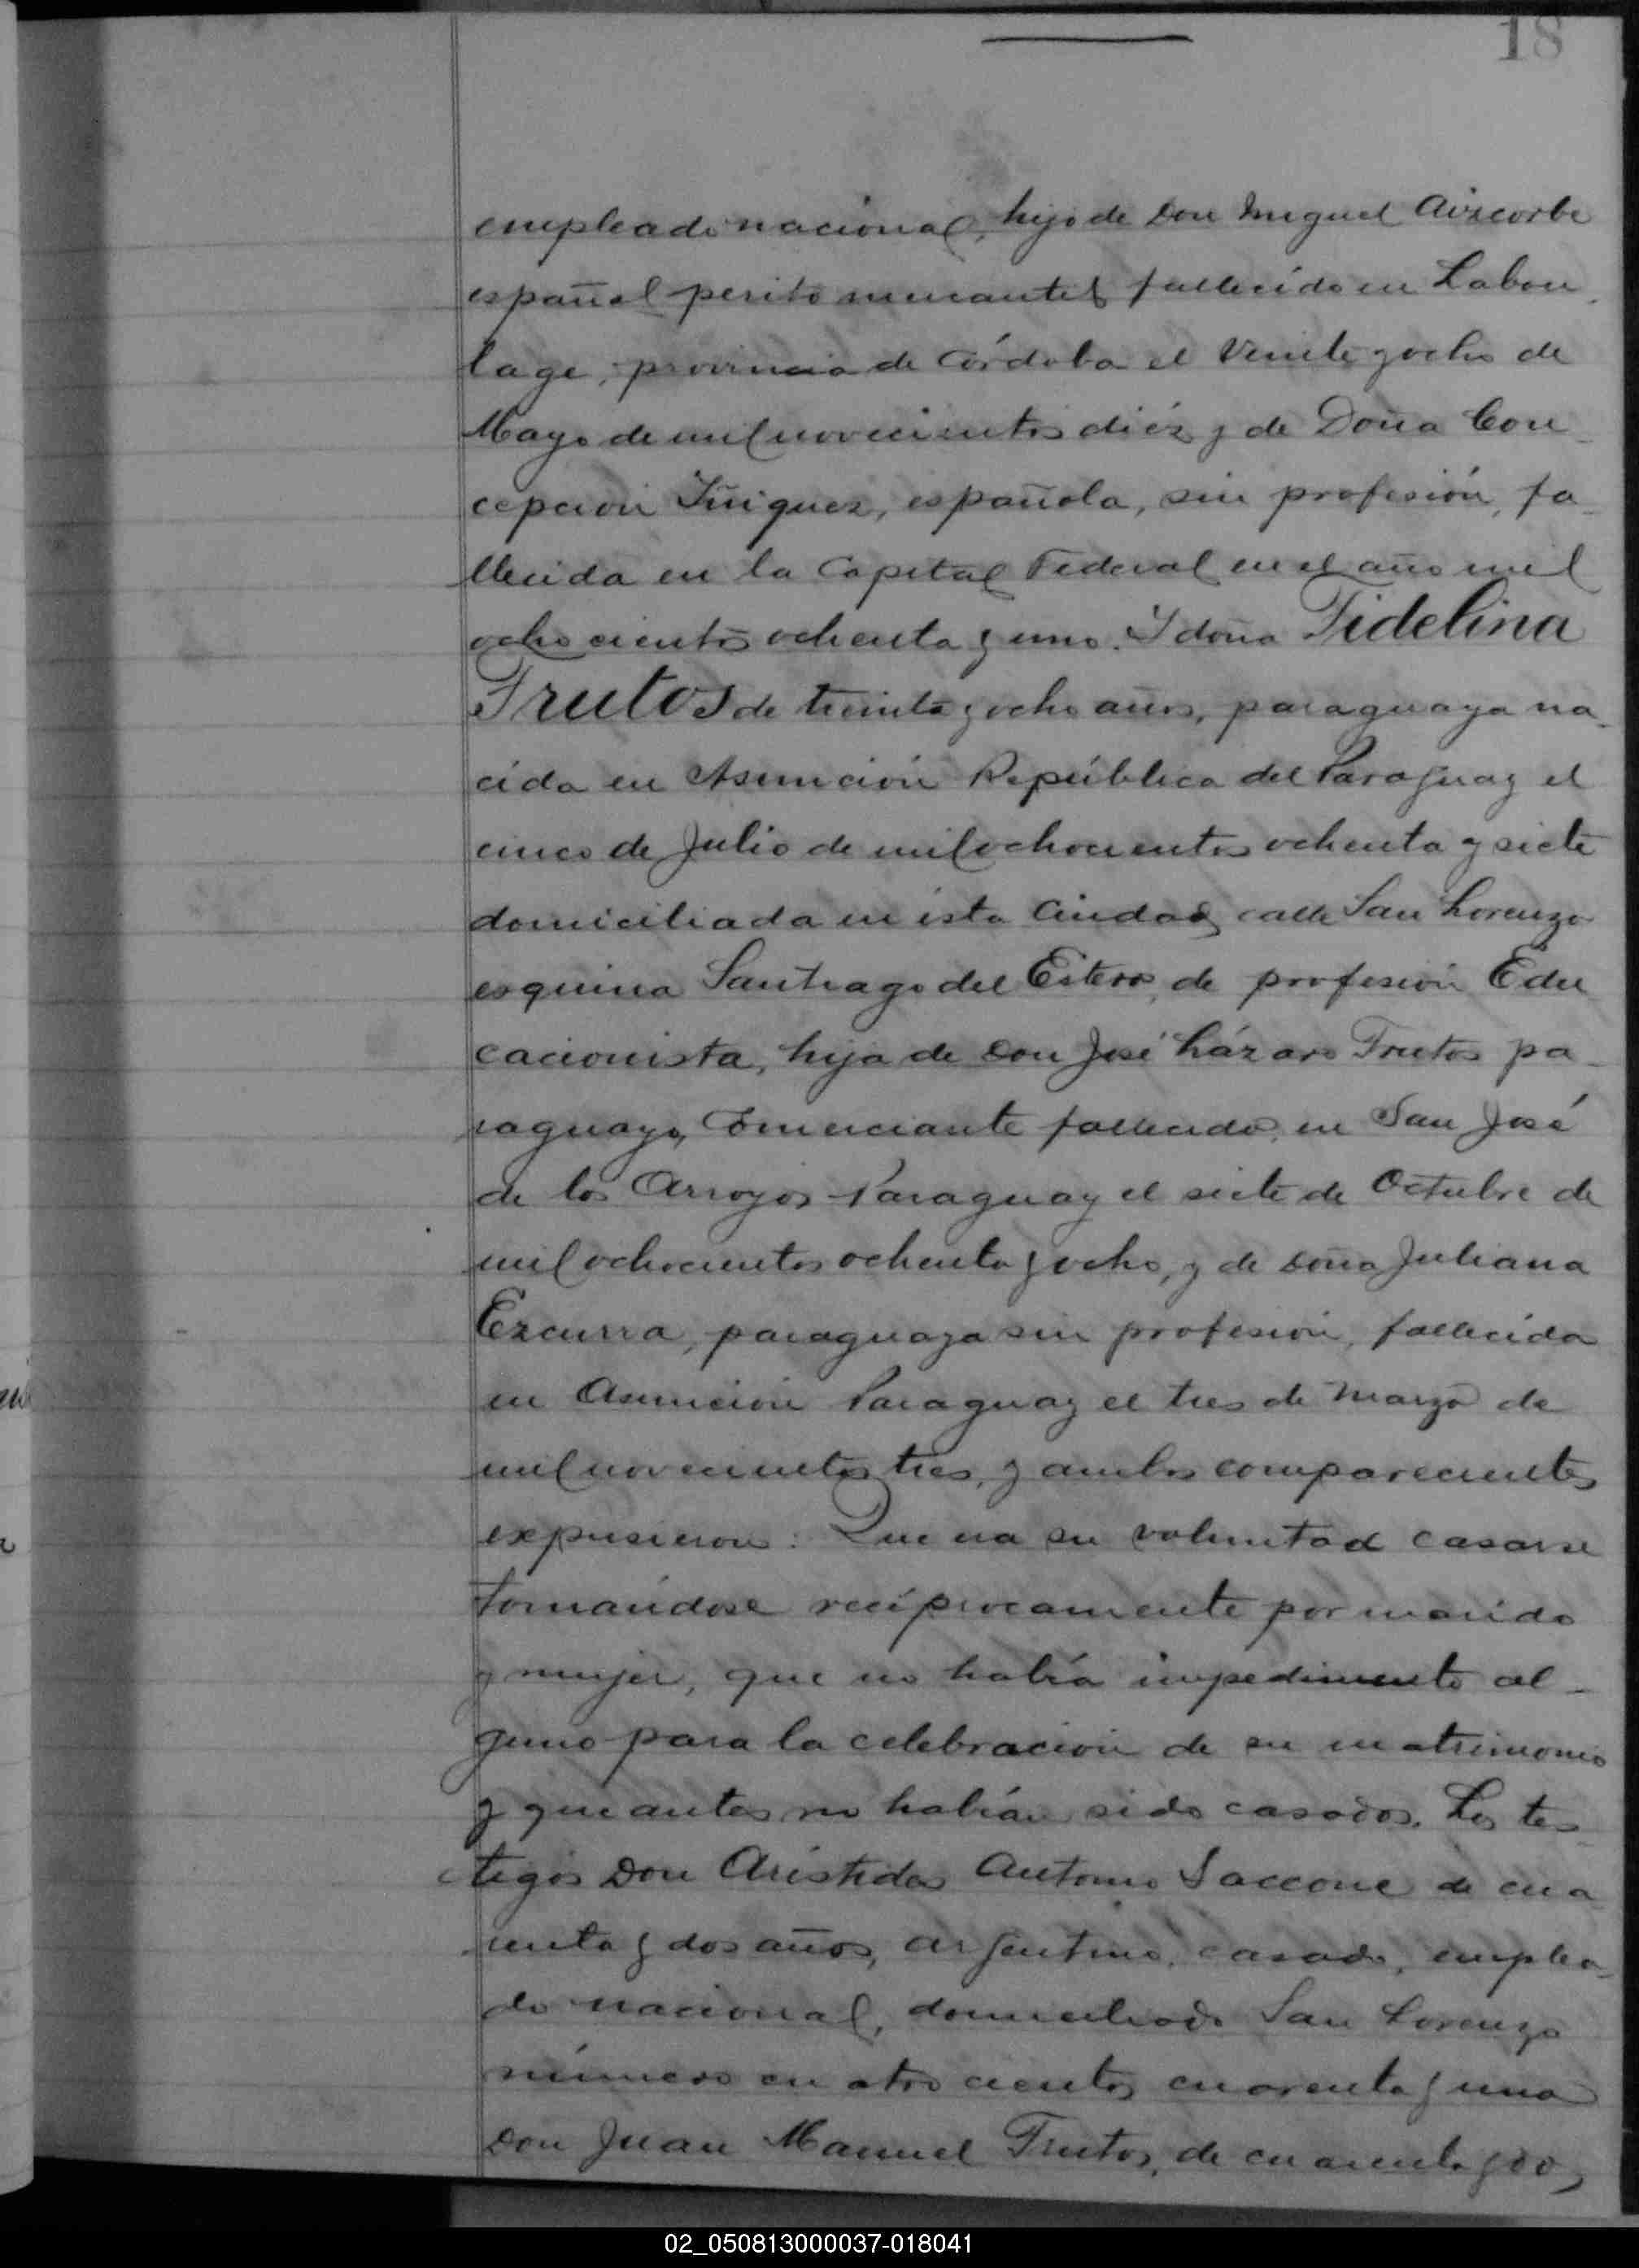 18
empleado nacional, hijo de Don Miguel Aizcorbe
español perito mercantil fallecido en Labou
lage, provincia de Córdoba el Veinte y ocho de
Mayo de mil novecientos diéz y de Doña Con
cepción Iñiguez, española, sin profesión, fa
llecida en la Capital Federal en el año mil
ocho cientos ochenta y uno. Y doña Fidelina
Frutos de treinta y ocho años, paraguaya na
cida en Asunción República del Paraguay el
cinco de Julio de mil ochocientos ochenta y siete
domiciliada en ésta Ciudad, calle San Lorenzo
esquina Santiago del Estero, de profesión Edu
cacionista, hija de Don José Lázaro Frutos pa
raguayo, Comerciante fallecido, en San José
de los Arroyos Paraguay el siete de Octubre de
mil ochocientos ochenta y ocho, y de doña Juliana
Ezcurra, paraguaya sin profesión, fallecida
en Asunción Paraguay el tres de Marzo de
mil novecientos tres, y ambos comparecientes
expusieron: Que era su voluntad casarse
tomándose recíprocamente por marido
y mujer, que no había impedimento al-
guno para la celebración de su matrimonio
y que antes no habían sido casados. Los tes
tigos Don Arístides Antonio Saccone de cua
renta y dos años, argentino, casado, emplea
do nacional, domiciliado San Lorenzo
número cuatro cientos cuarenta y uno
Don Juan Manuel Frutos, de cuarenta y dos
02_050813000037-018041